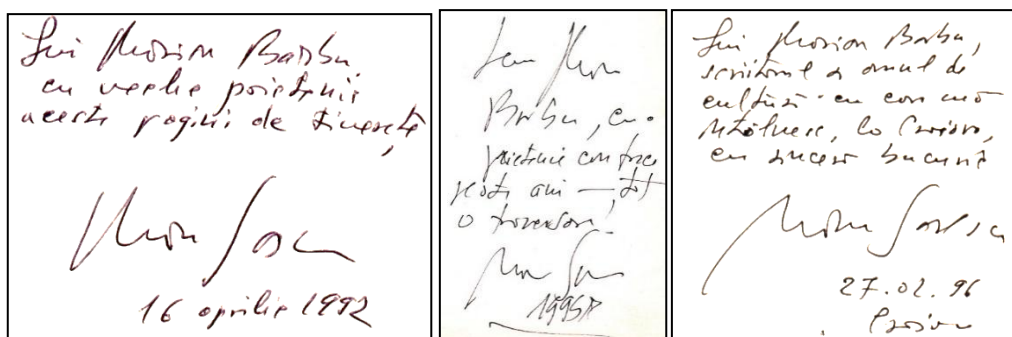 Lui Marian Barbu,
cu veche prietenie
aceste pagini de tinerețe,
Marin Sorescu
16 aprilie 1992
Barbu, cu
prietenie con trece
peste ani — tot
o
1995
Lui Marian Barbu,
scriitorul și omul de
cultură - cu care mă
întâlnesc, la Craiova,
cu sinceră bucurie
Marin Sorescu
27.02.96
Craiova